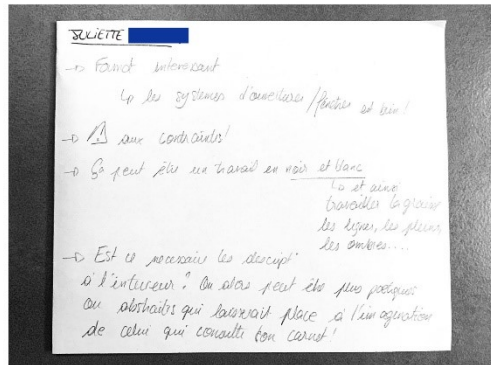 JULIETTE
→ Format intéressant
↳ les systèmes d'ouvertures / fenêtres est bien !
→ ⚠ aux contraintes !
→ Ça peut être un travail en noir et blanc
↳ et ainsi
travailler la
les lignes, les pleins
les ombres....
→ Est ce nécessaire les descript°
à l'intérieur ? Ou alors peut être plus poétiques
ou abstraites qui laisserait place à l'imagination
de celui qui consulte ton carnet !